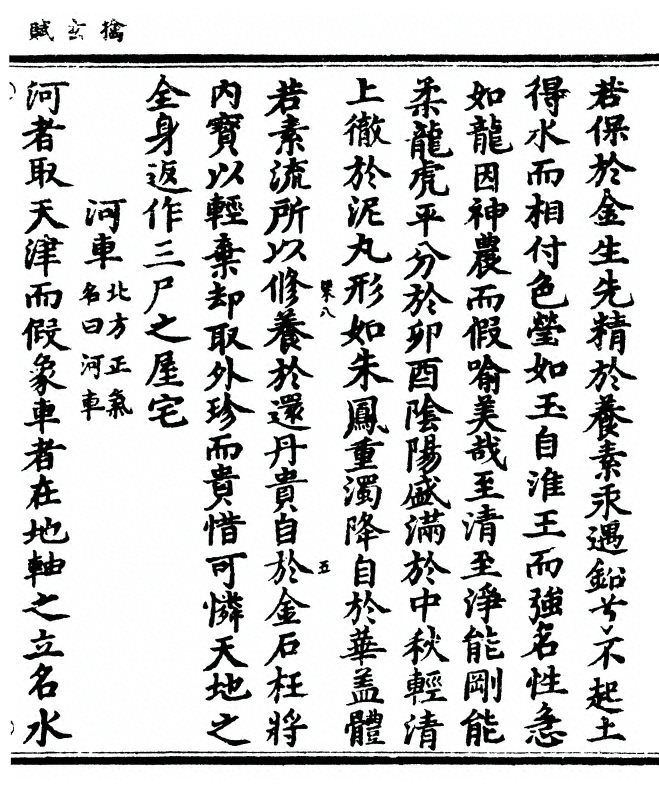 擒玄賦
若保於金生先精於養素汞遇鉛兮不起土
得水而相付色瑩如玉自淮王而強名性急
如龍因神農而假喻美哉至清至淨能剛能
柔龍虎平分於卯酉陰陽盛滿於中秋輕清
上徹於泥丸形如朱鳳重濁降自於華盖體
果八 五
若素流所以修養於還丹貴自於金石枉將
內寶以輕棄却取外珍而貴惜可憐天地之
全身返作三尸之屋宅
河車
北方正氣
名曰河車
河者取天津而假象車者在地軸之立名水